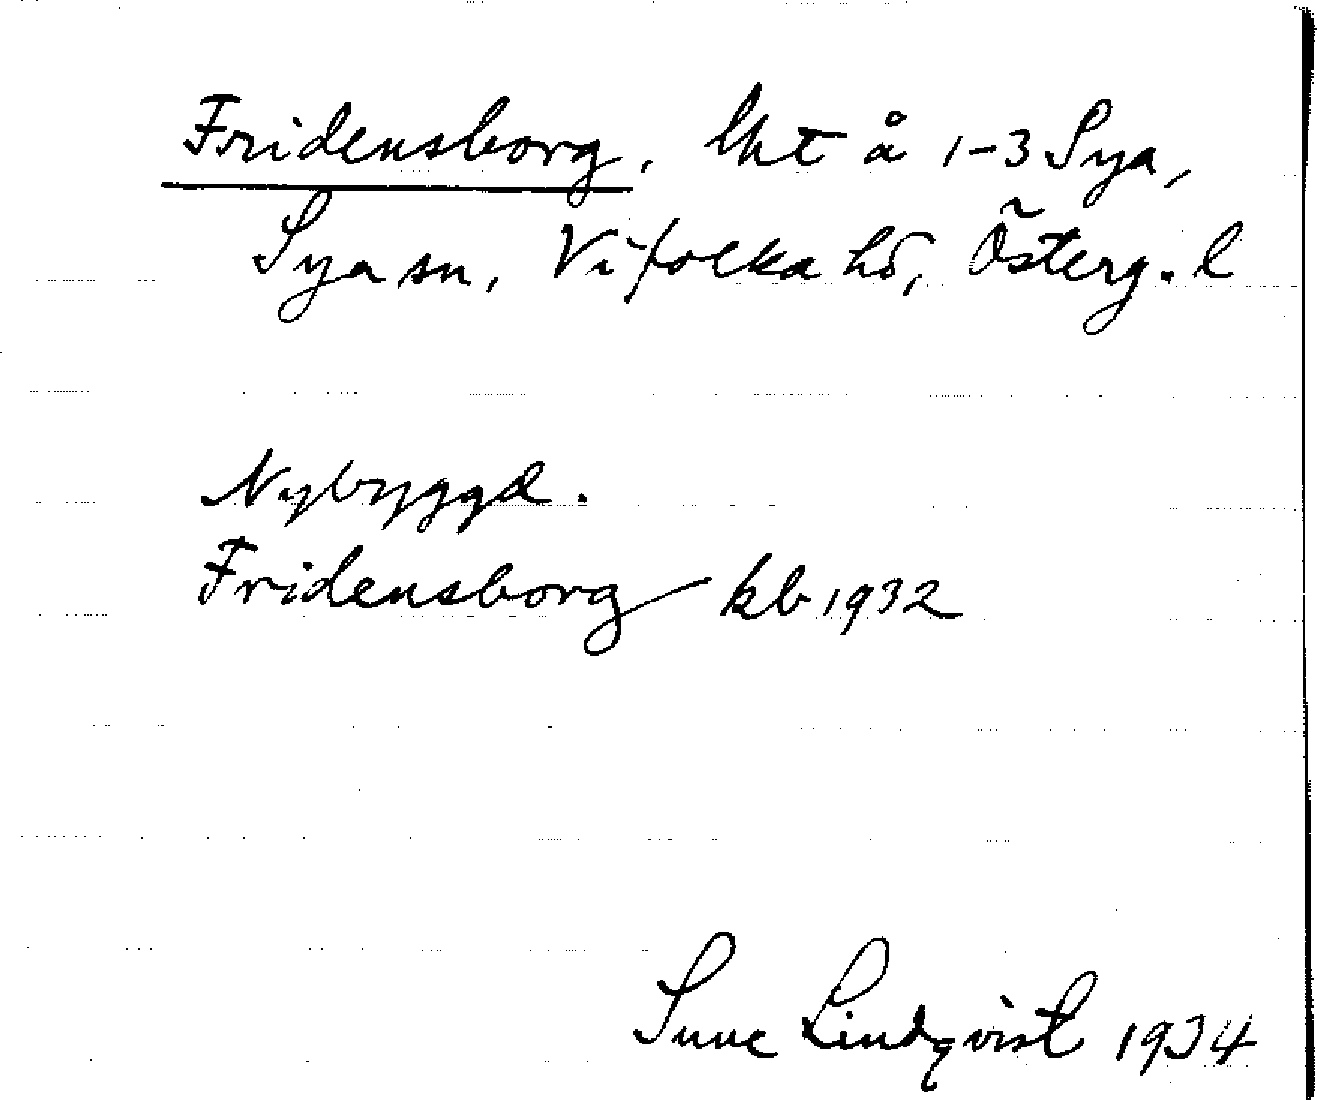 Fridensborg, lht å 1-3 Sya,
Sya sn, Vifolka hd, Österg. l
Nybyggd.
Fridensborg kb 1932
Sune Lindqvist 1934